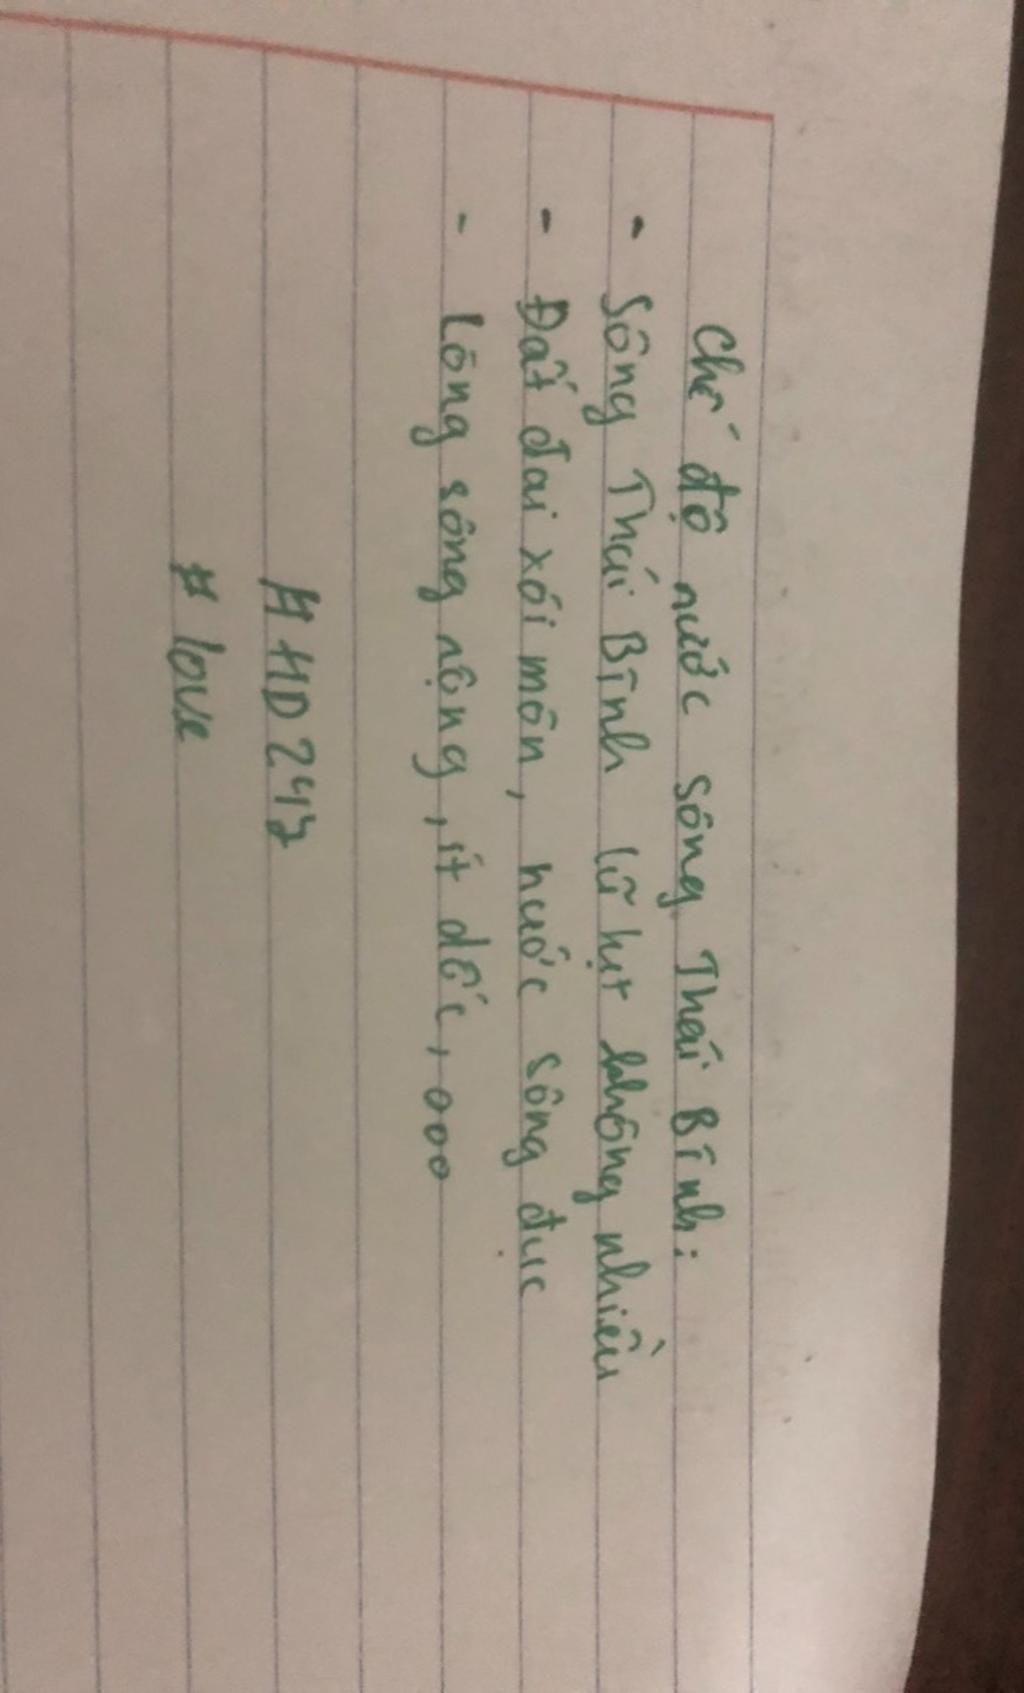 Chế độ nước sông Thái Bình:
- Sông Thái Bình lũ lụt không nhiều
- Đất đai xói mòn, nước sông đục
- Lòng sông rộng, ít dốc, ooo
# HD247
# love